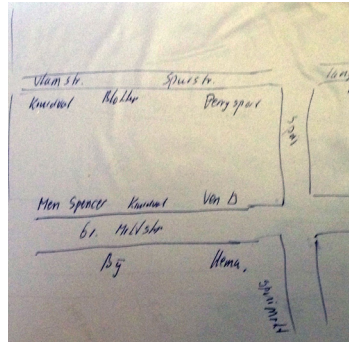 Vlamstr. Spuistr.
Kruidvat Blokker Perrysport
Men Spencer Kruidvat Van D
Gr. Mrktstr
Bij Hema.